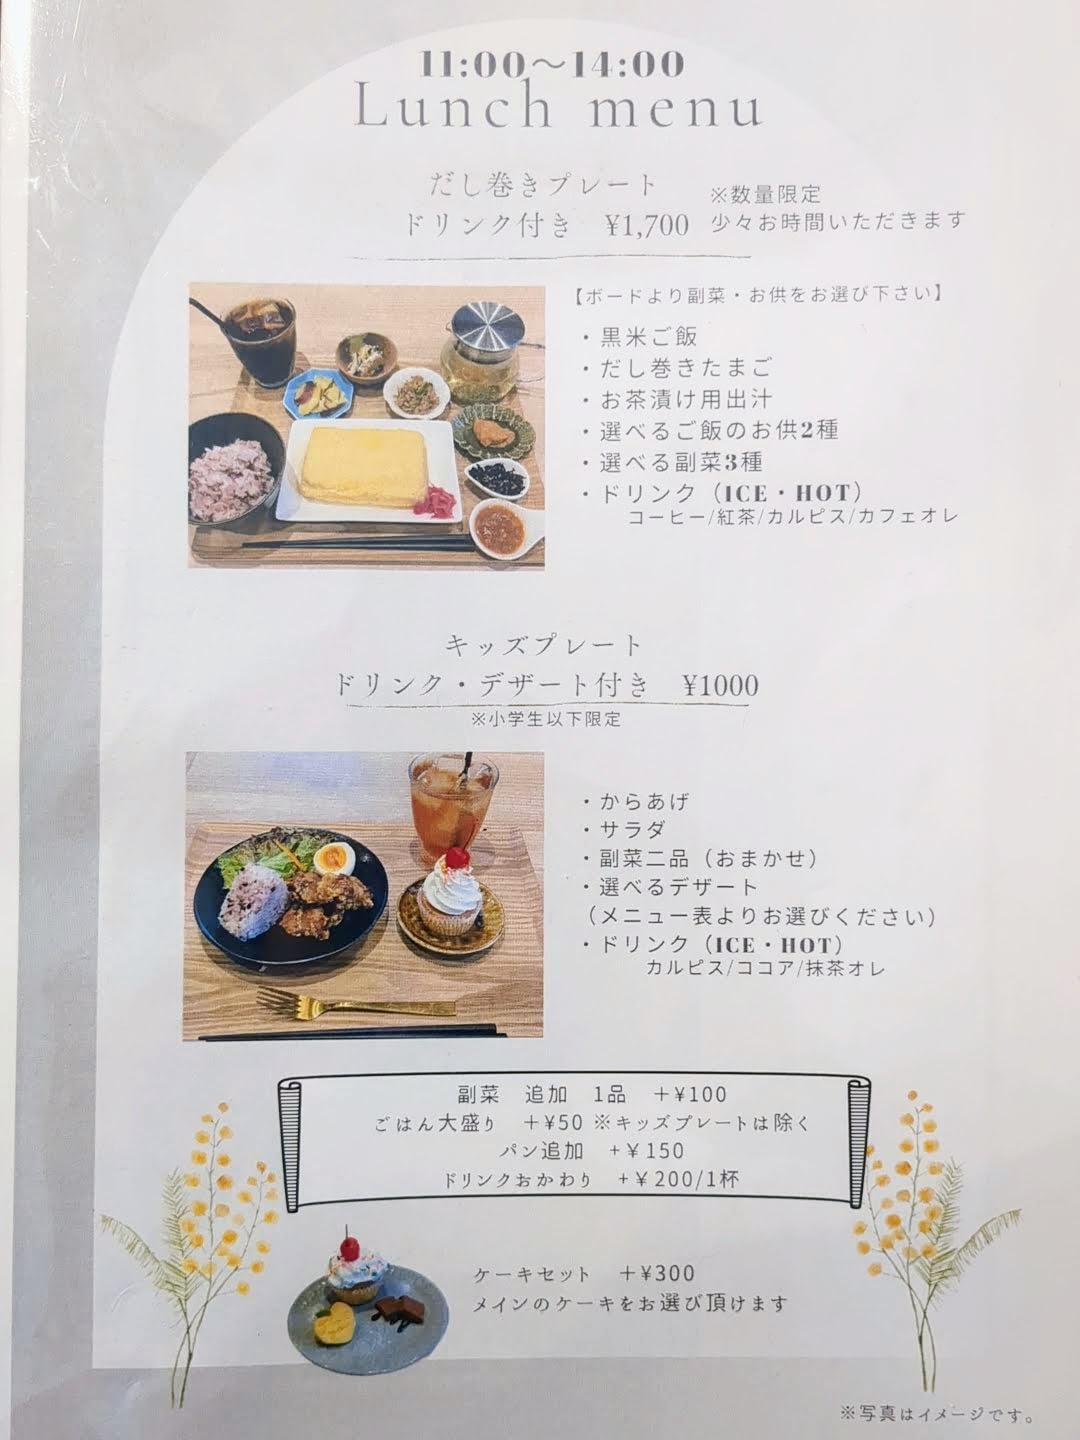 11:00～14:00
Lunch menu
だし巻きプレート
ドリンク付き　¥1,700
※数量限定
少々お時間いただきます
【ボードより副菜・お供をお選び下さい】
・黒米ご飯
・だし巻きたまご
・お茶漬け用出汁
・選べるご飯のお供2種
・選べる副菜3種
・ドリンク（ICE・HOT）
コーヒー/紅茶/カルピス/カフェオレ
キッズプレート
ドリンク・デザート付き　¥1000
※小学生以下限定
・からあげ
・サラダ
・副菜二品（おまかせ）
・選べるデザート
（メニュー表よりお選びください）
・ドリンク（ICE・HOT）
カルピス/ココア/抹茶オレ
副菜　追加　1品　＋¥100
ごはん大盛り　＋¥50 ※キッズプレートは除く
パン追加　+￥150
ドリンクおかわり　+￥200/1杯
ケーキセット　＋¥300
メインのケーキをお選び頂けます
※写真はイメージです。